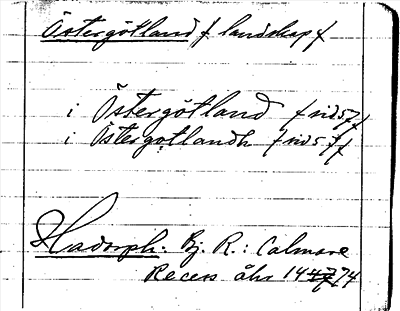 Östergötland / landskap /
i Östergötland / sid 57 /
i Östergotlandh / sid 57 /
Hadorph. Bj. R.: Calmare
Recess åhr 1474